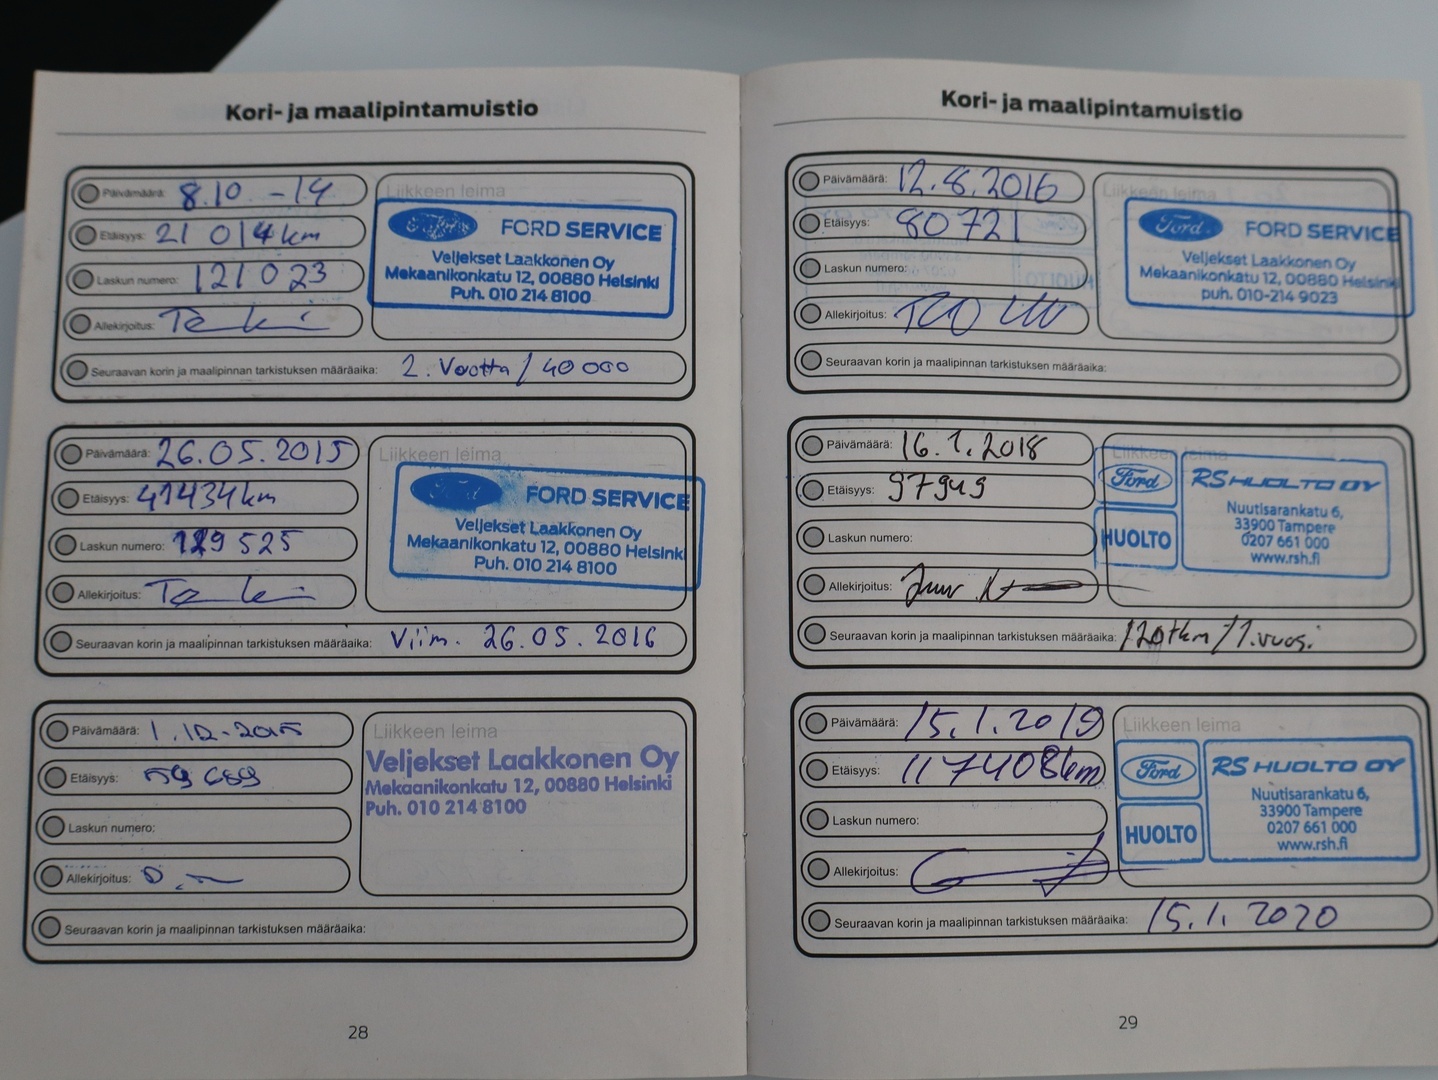 Kori- ja maalipintamuistio
Päivämäärä: 8.10 -14
Etäisyys: 21 014 km
Laskun numero: 121 023
Allekirjoitus:
Liikkeen leima
Ford FORD SERVICE
Veljekset Laakkonen Oy
Mekaanikonkatu 12, 00880 Helsinki
Puh. 010 214 8100
Seuraavan korin ja maalipinnan tarkistuksen määräaika: 2. Vuotta / 40 000
Päivämäärä: 26.05.2015
Etäisyys: 41434 km
Laskun numero: 129 525
Allekirjoitus:
Liikkeen leima
Ford FORD SERVICE
Veljekset Laakkonen Oy
Mekaanikonkatu 12, 00880 Helsinki
Puh. 010 214 8100
Seuraavan korin ja maalipinnan tarkistuksen määräaika: Viim. 26.05.2016
Päivämäärä: 1.12.2015
Etäisyys:
Laskun numero:
Allekirjoitus:
Liikkeen leima
Veljekset Laakkonen Oy
Mekaanikonkatu 12, 00880 Helsinki
Puh. 010 214 8100
Seuraavan korin ja maalipinnan tarkistuksen määräaika:
28
Kori- ja maalipintamuistio
Päivämäärä: 12.8.2016
Etäisyys: 80721
Laskun numero:
Allekirjoitus:
Liikkeen leima
Ford FORD SERVICE
Veljekset Laakkonen Oy
Mekaanikonkatu 12, 00880 Helsinki
puh. 010-214 9023
Seuraavan korin ja maalipinnan tarkistuksen määräaika:
Päivämäärä: 16.1.2018
Etäisyys: 97949
Laskun numero:
Allekirjoitus:
Liikkeen leima
Ford HUOLTO
RS HUOLTO OY
Nuutisarankatu 6,
33900 Tampere
0207 661 000
www.rsh.fi
Seuraavan korin ja maalipinnan tarkistuksen määräaika: 120tkm / 1.vuosi
Päivämäärä: 15.1.2019
Etäisyys: 117408km
Laskun numero:
Allekirjoitus:
Liikkeen leima
Ford HUOLTO
RS HUOLTO OY
Nuutisarankatu 6,
33900 Tampere
0207 661 000
www.rsh.fi
Seuraavan korin ja maalipinnan tarkistuksen määräaika: 15.1.2020
29